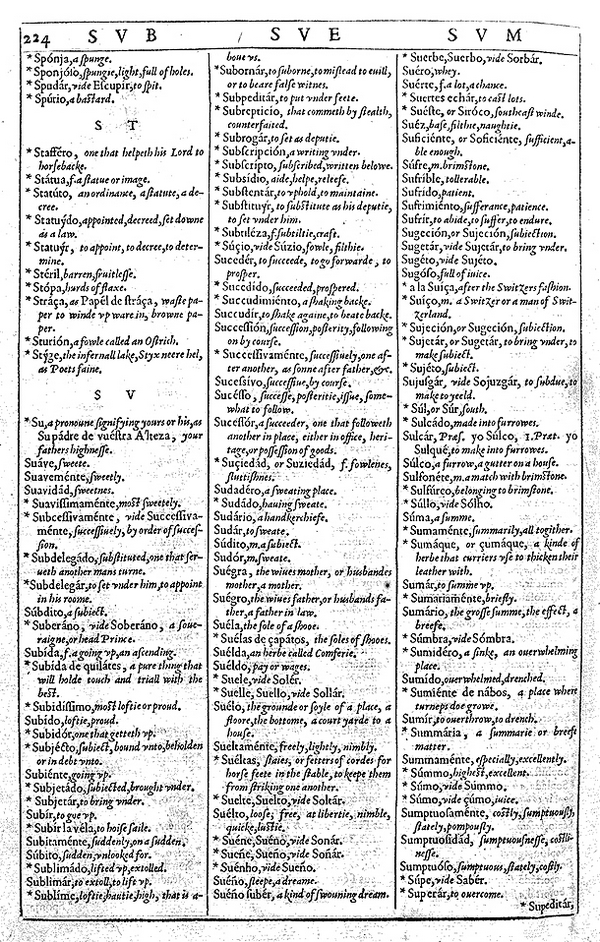 224 S V B S V E S V M
* Spónja, a spunge.
* Sponjóso, spungie, light, full of holes.
* Spudár, vide Escupir, to spit.
* Spúrio, a bastard.
S T
* Stafféro, one that helpeth his Lord to
horsebacke.
* Státua, f. a statue or image.
* Statúto, an ordinance, a statute, a de-
cree.
* Statuýdo, appointed, decreed, set downe
as a law.
* Statuýr, to appoint, to decree, to deter-
mine.
* Stéril, barren, fruitlesse.
* Stópa, hurds of flaxe.
* Stráça, as Papél de stráça, waste pa-
per to winde vp ware in, browne pa-
per.
* Sturión, a fowle called an Ostrich.
* Stýge, the infernall lake, Styx neere hel,
as Poets faine.
S V
* Su, a pronoune signifying yours or his, as
Su pádre de vuéstra Alteza, your
fathers highnesse.
Suáve, sweete.
Suaveménte, sweetly.
Suavidád, sweetnes.
* Suavissimaménte, most sweetely.
* Subcessivaménte, vide Successiva-
ménte, successiuely, by order of succes-
sion.
* Subdelegádo, substituted, one that ser-
ueth another mans turne.
* Subdelegár, to set vnder him, to appoint
in his roome.
Súbdito, a subiect.
* Suberáno, vide Soberáno, a soue-
raigne, or head Prince.
Subída, f. a going vp, an ascending.
* Subída de quilátes, a pure thing that
will holde touch and triall with the
best.
* Subidíssimo, most loftie or proud.
Subído, loftie, proud.
* Subidór, one that getteth vp.
* Subjécto, subiect, bound vnto, beholden
or in debt vnto.
Subiénte, going vp.
* Subjetádo, subiected, brought vnder.
* Subjetár, to bring vnder.
Subír, to goe vp.
* Subír la véla, to hoise saile.
Subitaménte, suddenly, on a sudden.
Súbito, sudden, vnlooked for.
* Sublimádo, lifted vp, extolled.
Sublimár, to extoll, to lift vp.
* Sublíme, loftie, hautie, high, that is a-
boue vs.
* Subornár, to suborne, to mislead to euill,
or to beare false witnes.
* Subpeditár, to put vnder feete.
* Subreptício, that commeth by stealth,
counterfaited.
* Subrogár, to set as deputie.
* Subscripción, a writing vnder.
* Subscripto, subscribed, written belowe.
* Subsídio, aide, helpe, releefe.
* Substentár, to vphold, to maintaine.
* Substituýr, to substitute as his deputie,
to set vnder him.
* Subtiléza, f. subtiltie, craft.
* Súçio, vide Súzio, fowle, filthie.
Sucedér, to succeede, to go forwarde, to
prosper.
* Sucedído, succeeded, prospered.
* Succudimiénto, a shaking backe.
Succudír, to shake againe, to beate backe.
Successión, succession, posterity, following
on by course.
* Successivaménte, successiuely, one af-
ter another, as sonne after father, &c.
Sucesívo, successiue, by course.
Sucésso, successe, posteritie, issue, some-
what to follow.
Sucessór, a succeeder, one that followeth
another in place, either in office, heri-
tage, or possession of goods.
* Suçiedád, or Suziedád, f. fowlenes,
sluttishnes.
Sudadéro, a sweating place.
* Sudádo, hauing sweate.
Sudário, a handkerchiefe.
Sudár, to sweate.
Súdito, m. a subiect.
Sudór, m. sweate.
Suégra, the wiues mother, or husbandes
mother, a mother.
Suégro, the wiues father, or husbands fa-
ther, a father in law.
Suéla, the sole of a shooe.
* Suélas de çapátos, the soles of shooes.
Suélda, an herbe called Comferie.
Suéldo, pay or wages.
* Suele, vide Solér.
* Suelle, Suello, vide Sollár.
Suélo, the grounde or soyle of a place, a
floore, the bottome, a court yarde to a
house.
Sueltaménte, freely, lightly, nimbly.
* Suéltas, staies, or fetters of cordes for
horse feete in the stable, to keepe them
from striking one another.
* Suelte, Suelto, vide Soltár.
Suélto, loose, free, at libertie, nimble,
quicke, lustie.
* Suéne, Suéno, vide Sonár.
* Sueñe, Sueño, vide Soñár.
* Suénho, vide Sueño.
Suéño, sleepe, a dreame.
Sueño subér, a kind of swouning dream.
* Suerbe, Suerbo, vide Sorbár.
Suéro, whey.
Suérte, f. a lot, a chance.
* Suertes echár, to cast lots.
* Suéste, or Siróco, southeast winde.
Suéz, base, filthie, naughtie.
Suficiénte, or Soficiénte, sufficient, a-
ble enough.
Súfre, m. brimstone.
Sufríble, tollerable.
Sufrído, patient.
Sufrimiénto, sufferance, patience.
Sufrír, to abide, to suffer, to endure.
Sugeción, or Sujeción, subiection.
Sugetár, vide Sujetár, to bring vnder.
Sugéto, vide Sujéto.
Sugóso, full of iuice.
* a la Suiça, after the Switzers fashion.
* Suíço, m. a Switzer or a man of Swit-
zerland.
* Sujeción, or Sugeción, subiection.
* Sujetár, or Sugetár, to bring vnder, to
make subiect.
* Sujéto, subiect.
Sujusgár, vide Sojuzgár, to subdue, to
make to yeeld.
* Súl, or Súr, south.
* Sulcádo, made into furrowes.
Sulcár, Præs. yo Súlco, 1. Præt. yo
Sulqué, to make into furrowes.
Súlco, a furrow, a gutter on a house.
Sulfonéte, m. a match with brimstone.
* Sulfúreo, belonging to brimstone.
* Súllo, vide Sólho.
Súma, a summe.
* Sumaménte, summarily, all together.
* Sumáque, or çumáque, a kinde of
herbe that curriers vse to thicken their
leather with.
Sumár, to summe vp.
* Sumariaménte, briefly.
Sumário, the grosse summe, the effect, a
breefe.
* Súmbra, vide Sómbra.
* Sumidéro, a sinke, an ouerwhelming
place.
Sumído, ouerwhelmed, drenched.
* Sumiénte de nábos, a place where
turneps doe growe.
Sumír, to ouerthrow, to drench.
* Summária, a summarie or breefe
matter.
Summaménte, especially, excellently.
* Súmmo, highest, excellent.
* Súmo, vide Súmmo.
* Súmo, vide çúmo, iuice.
Sumptuosaménte, costly, sumptuously,
stately, pompously.
Sumptuosidád, sumptuousnesse, costli-
nesse.
Sumptuóso, sumptuous, stately, costly.
* Súpe, vide Sabér.
* Superár, to ouercome.
* Supeditár,